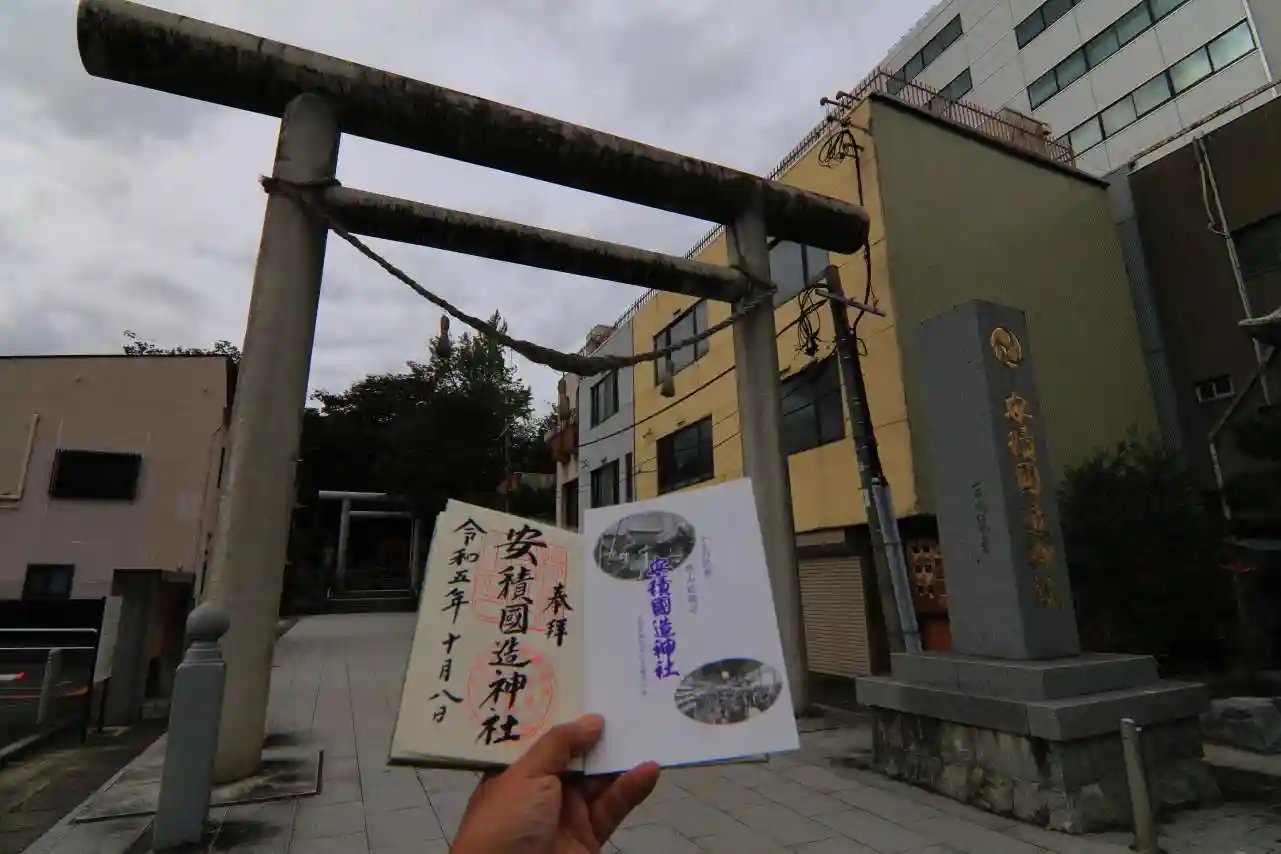 奉拝
安積國造神社
令和五年 十月八日
安積國造神社
安積國造神社